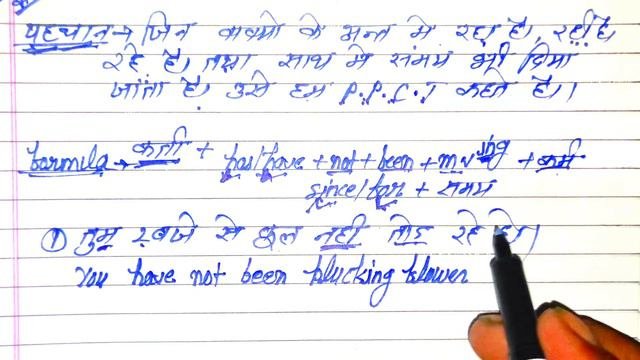 पहचान → जिन वाक्यो के अन्त मे रहा है, रही है,
रहे है। तथा साथ मे समय भी दिया
जाता है। उसे हम P.P.C.T कहते है।।
formula → कर्ता + has/have + not + been + mv ing + कर्म
since/for + समय
① तुम २ बजे से फूल नही तोड रहे हो।
You have not been plucking flower